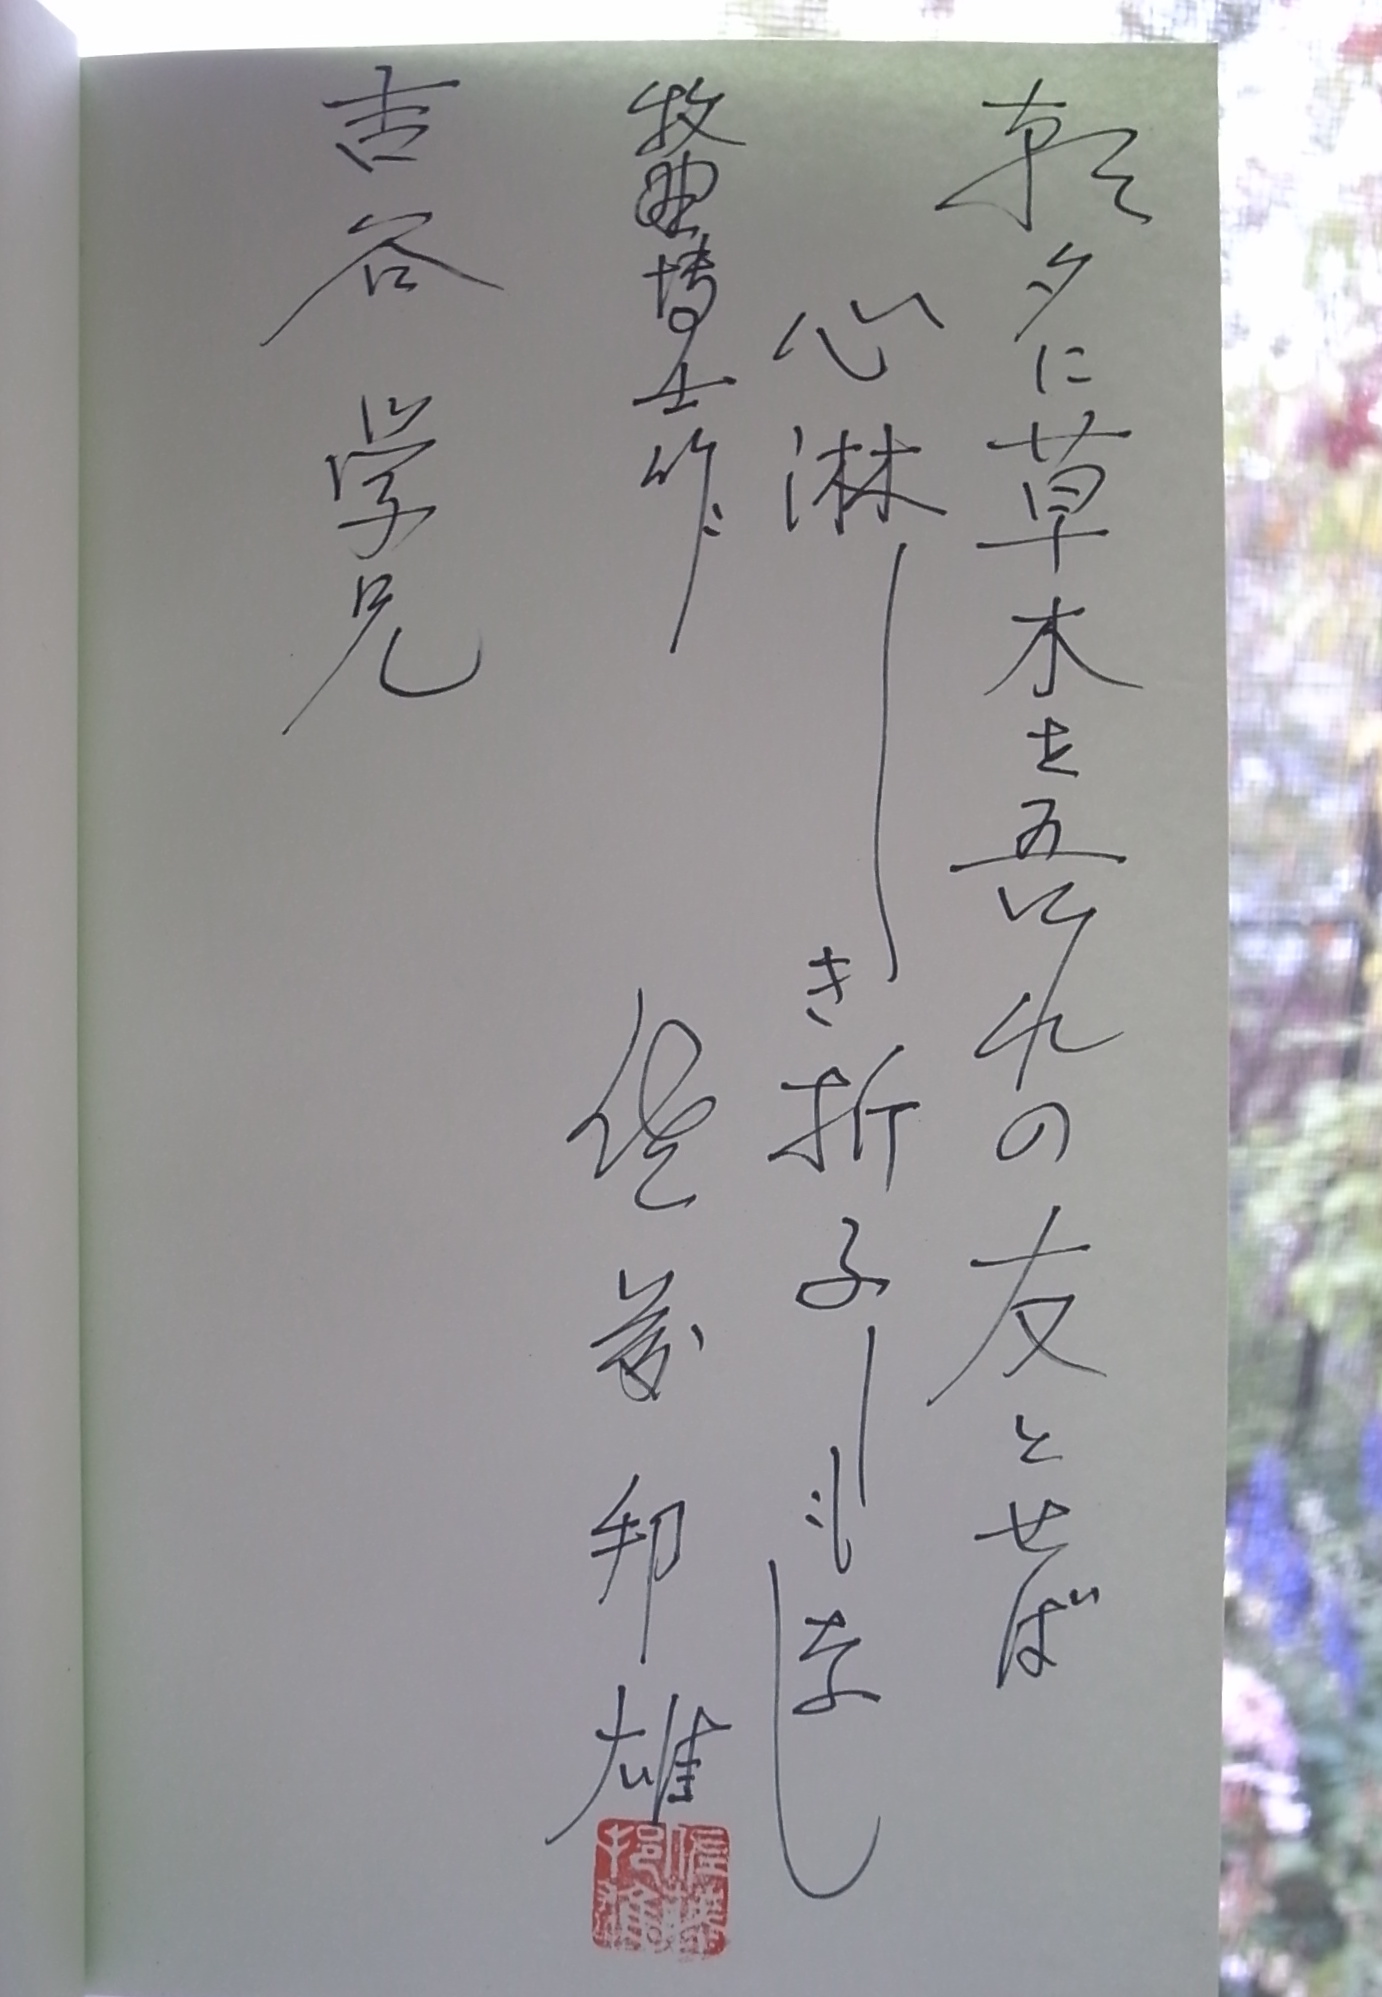 朝夕に草木を吾れの友とせば
心淋しき折ふしもなし
牧野博士作
佐藤邦雄
吉谷学兄
佐藤邦雄